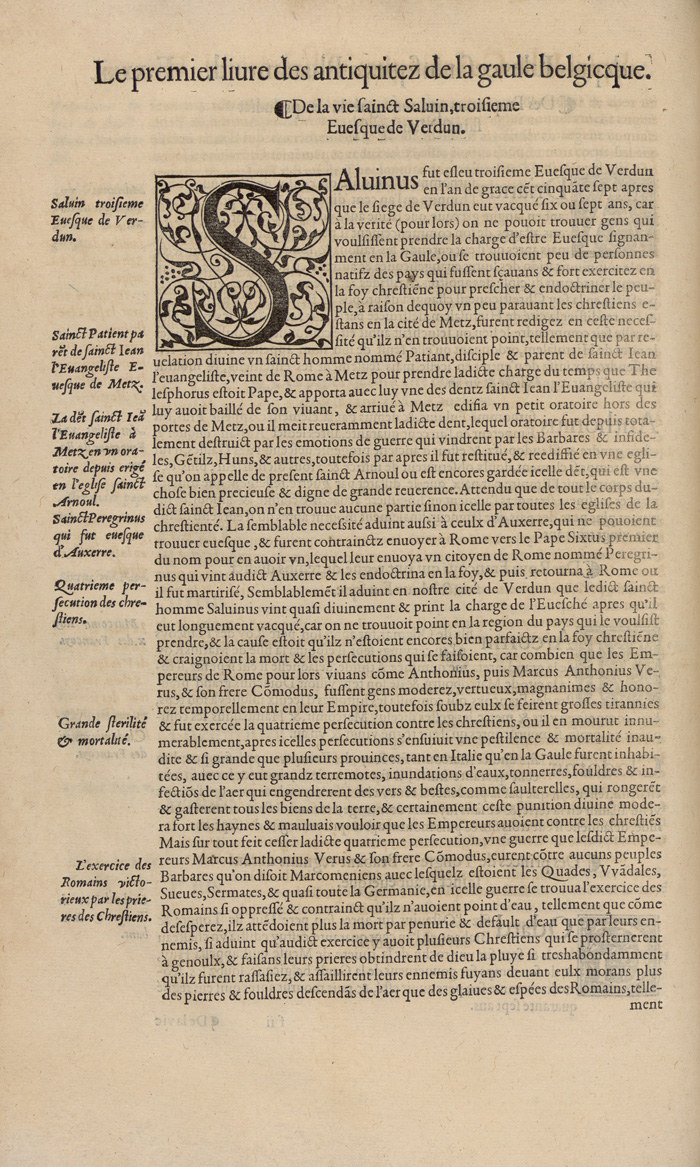 Le premier liure des antiquitez de la gaule belgicque.
De la vie sainct Saluin, troisieme
Euesque de Verdun.
Saluin troisieme
Euesque de Ver-
dun.
SAluinus fut esleu troisieme Euesque de Verdun
en l'an de grace cēt cinquāte sept apres
que le siege de Verdun eut vacqué six ou sept ans, car
à la verité (pour lors) on ne pouoit trouuer gens qui
voulsissent prendre la charge d'estre Euesque signan-
ment en la Gaule, ou se trouuoient peu de personnes
natifz des pays qui fussent sçauans & fort exercitez en
la foy chrestiēne pour prescher & endoctriner le peu-
ple, à raison dequoy vn peu parauant les chrestiens e-
stans en la cité de Metz, furent redigez en ceste neces-
sité qu'ilz n'en trouuoient point, tellement que par re-
Sainct Patient pa
rēt de sainct Iean
l'Euangeliste E-
uesque de Metz.
uelation diuine vn sainct homme nommé Patiant, disciple & parent de sainct Iean
l'euangeliste, veint de Rome à Metz pour prendre ladicte charge du temps que The
lesphorus estoit Pape, & apporta auec luy vne des dentz sainct Iean l'Euangeliste qui
luy auoit baillé de son viuant, & arriué à Metz edifia vn petit oratoire hors des
portes de Metz, ou il meit reueramment ladicte dent, lequel oratoire fut depuis tota-
lement destruict par les emotions de guerre qui vindrent par les Barbares & infide-
les, Gētilz, Huns, & autres, toutefois par apres il fut restitué, & reedifié en vne egli-
se qu'on appelle de present sainct Arnoul ou est encores gardée icelle dēt, qui est vne
chose bien precieuse & digne de grande reuerence. Attendu que de tout le corps du-
dict sainct Iean, on n'en trouue aucune partie sinon icelle par toutes les eglises de la
chrestienté. La semblable necessité aduint aussi à ceulx d'Auxerre, qui ne pouoient
trouuer euesque, & furent contrainctz enuoyer à Rome vers le Pape Sixtus premier
du nom pour en auoir vn, lequel leur enuoya vn citoyen de Rome nommé Peregri-
nus qui vint audict Auxerre & les endoctrina en la foy, & puis retourna à Rome ou
il fut martirisé, Semblablemēt il aduint en nostre cité de Verdun que ledict sainct
homme Saluinus vint quasi diuinement & print la charge de l'Euesché apres qu'il
eut longuement vacqué, car on ne trouuoit point en la region du pays qui le voulsist
prendre, & la cause estoit qu'ilz n'estoient encores bien parfaictz en la foy chrestiēne
& craignoient la mort & les persecutions qui se faisoient, car combien que les Em-
pereurs de Rome pour lors viuans cōme Anthonius, puis Marcus Anthonius Ve-
rus, & son frere Cōmodus, fussent gens moderez, vertueux, magnanimes & hono-
rez temporellement en leur Empire, toutefois soubz eulx se feirent grosses tirannies
& fut exercée la quatrieme persecution contre les chrestiens, ou il en mourut innu-
merablement, apres icelles persecutions s'ensuiuit vne pestilence & mortalité inau-
dite & si grande que plusieurs prouinces, tant en Italie qu'en la Gaule furent inhabi-
tées, auec ce y eut grandz terremotes, inundations d'eaux, tonnerres, fouldres & in-
fectiōs de l'aer qui engendrerent des vers & bestes, comme saulterelles, qui rongerēt
& gasterent tous les biens de la terre, & certainement ceste punition diuine mode-
ra fort les haynes & mauluais vouloir que les Empereurs auoient contre les chrestiēs
Mais sur tout feit cesser ladicte quatrieme persecution, vne guerre que lesdict Empe-
reurs Marcus Anthonius Verus & son frere Cōmodus, eurent cōtre aucuns peuples
Barbares qu'on disoit Marcomeniens auec lesquelz estoient les Quades, Vvādales,
Sueues, Sermates, & quasi toute la Germanie, en icelle guerre se trouua l'exercice des
Romains si oppressé & contrainct qu'ilz n'auoient point d'eau, tellement que cōme
desesperez, ilz attēdoient plus la mort par penurie & default d'eau que par leurs en-
nemis, si aduint qu'audict exercice y auoit plusieurs Chrestiens qui se prosternerent
à genoulx, & faisans leurs prieres obtindrent de dieu la pluye si treshabondamment
qu'ilz furent rassasiez, & assaillirent leurs ennemis fuyans deuant eulx morans plus
des pierres & fouldres descendās de l'aer que des glaiues & espées des Romains, telle-
ment
La dēt sainct Ieā
l'Euangeliste à
Metz en vn ora-
toire depuis erigé
en l'eglise sainct
Arnoul.
Sainct Peregrinus
qui fut euesque
d'Auxerre.
Quatrieme per-
secution des chre-
stiens.
Grande sterilité
& mortalité.
L'exercice des
Romains victo-
rieux par les prie-
res des Chrestiens.